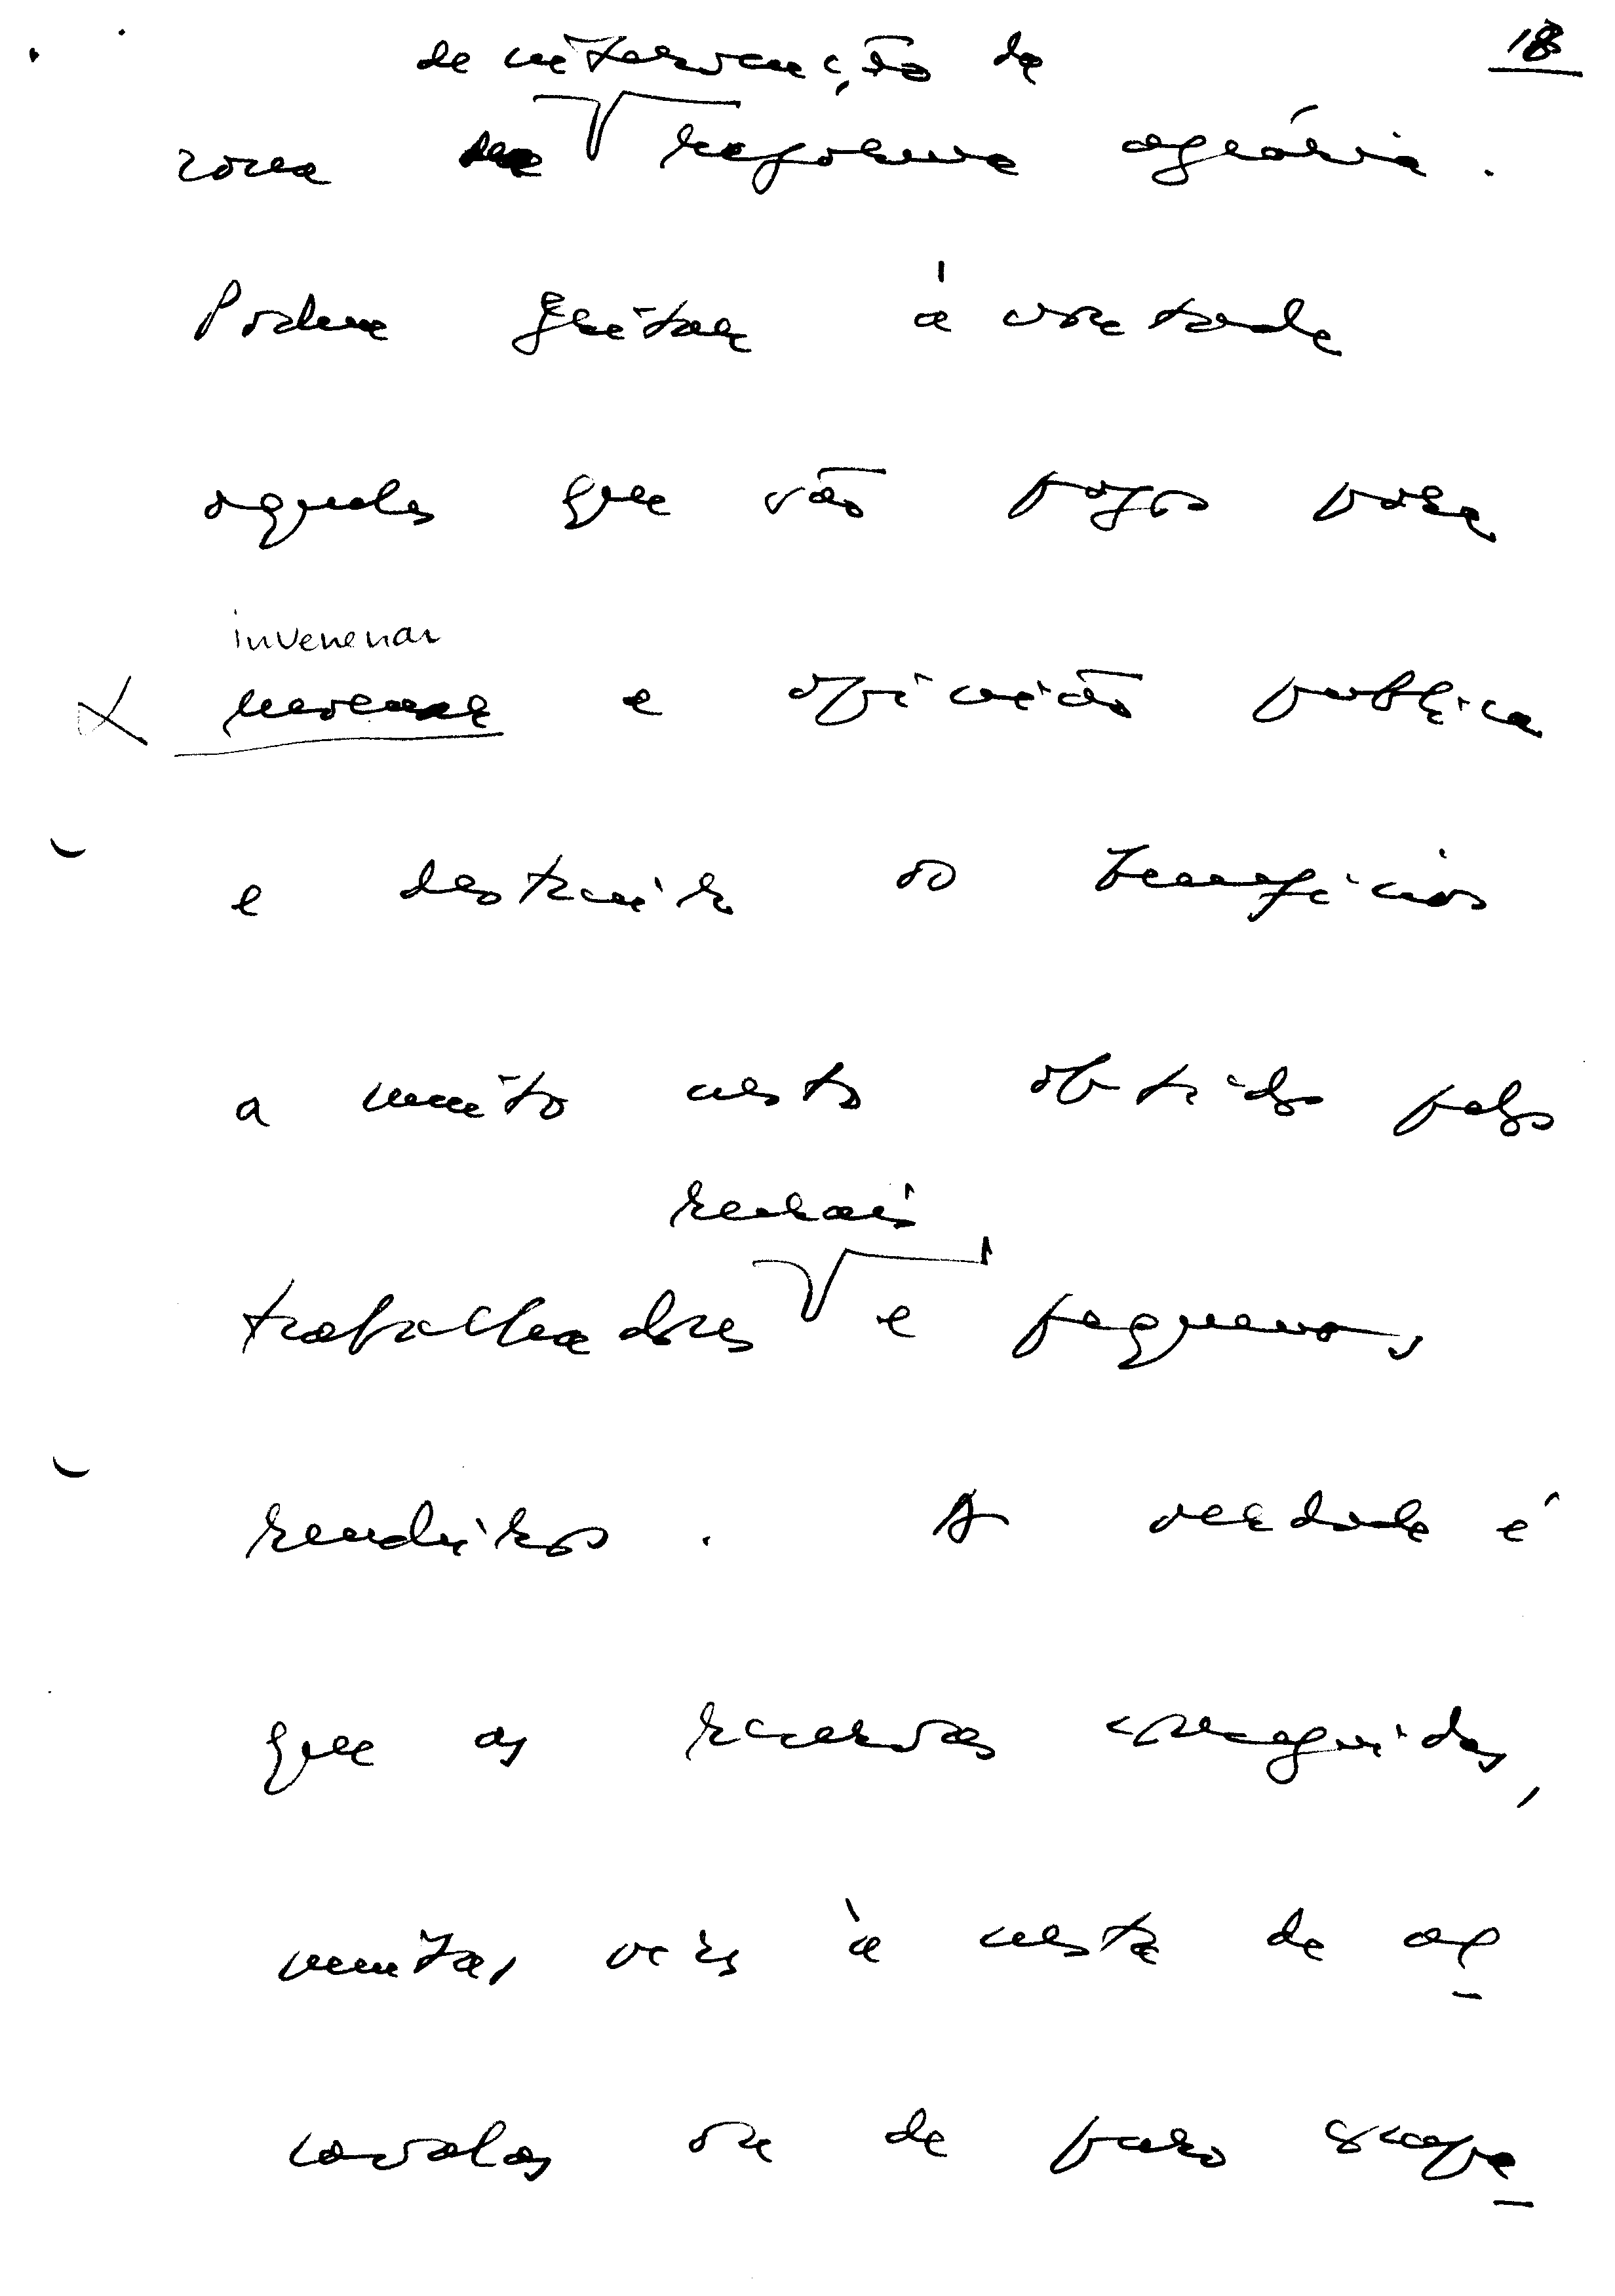 18
de intervenção da
zona reforma agrária.
Podem gritar à vontade
aqueles que são pagos para
invenenar
a opinião publica
e destruir os beneficios
a muito custo obtidos pelos
rurais
trabalhadores e pequenos
rendeiros. A verdade é
que as reservas conseguidas,
muitas vezes à custa de al
cavalas ou de puro